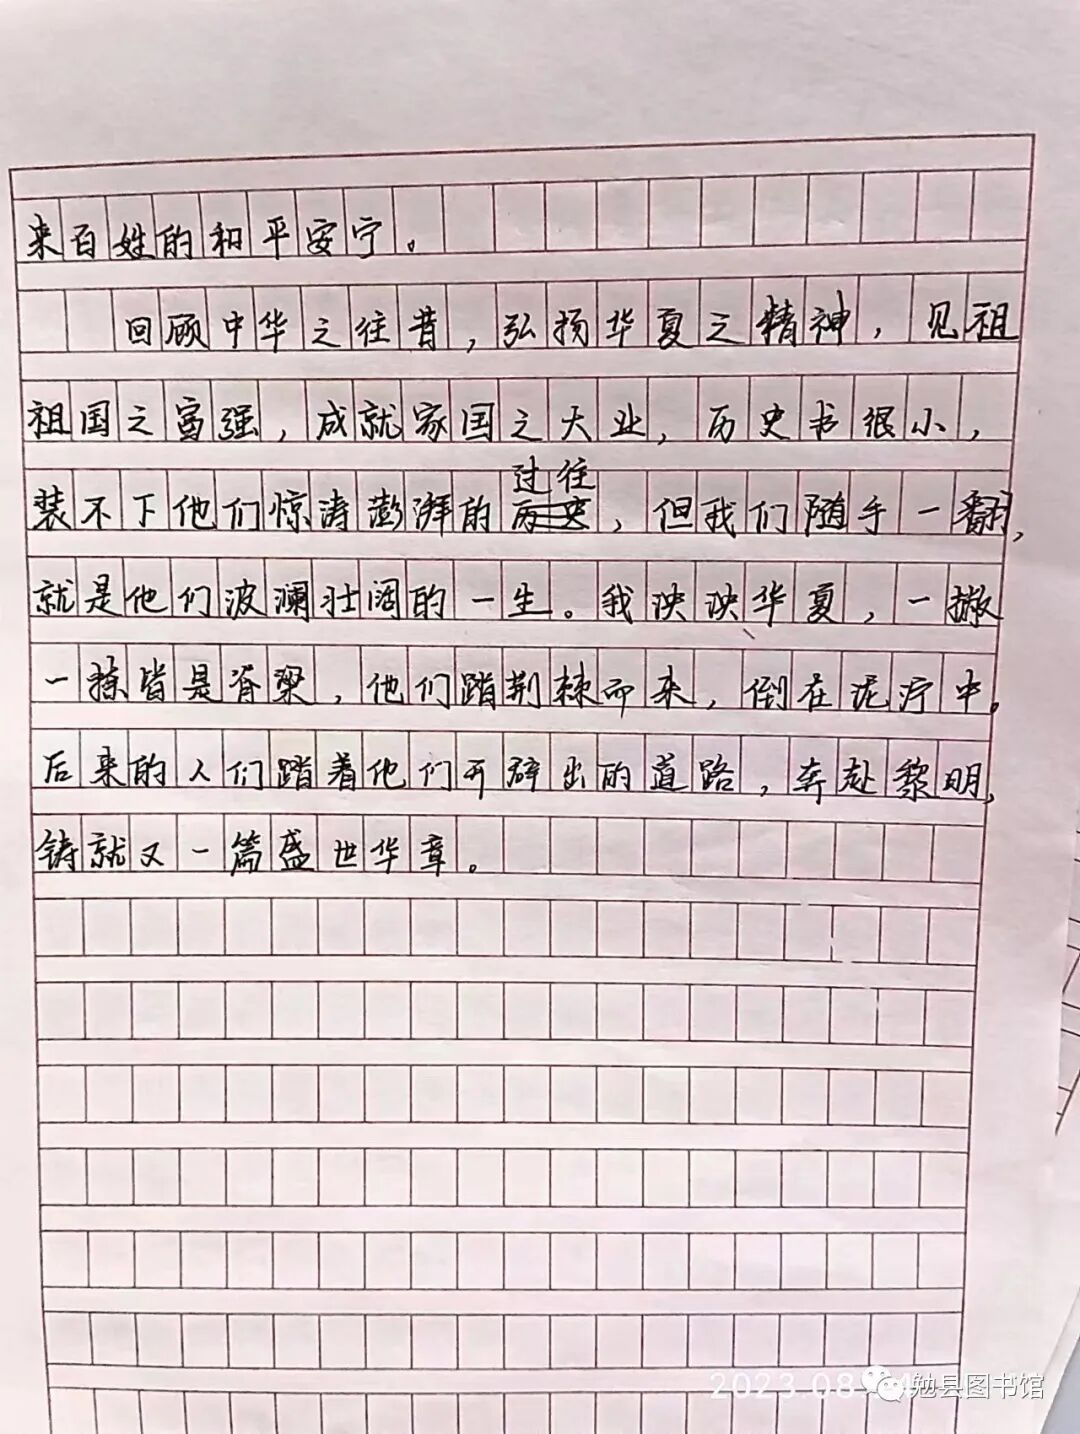 来百姓的和平安宁。
回顾中华之往昔，弘扬华夏之精神，见祖
祖国之富强，成就家国之大业，历史书很小，
过往
装不下他们惊涛澎湃的历史，但我们随手一翻，
就是他们波澜壮阔的一生。我泱泱华夏，一撇
一捺皆是脊梁，他们踏荆棘而来，倒在泥泞中。
后来的人们踏着他们开辟出的道路，奔赴黎明，
铸就又一篇盛世华章。
2023.08
勉县图书馆